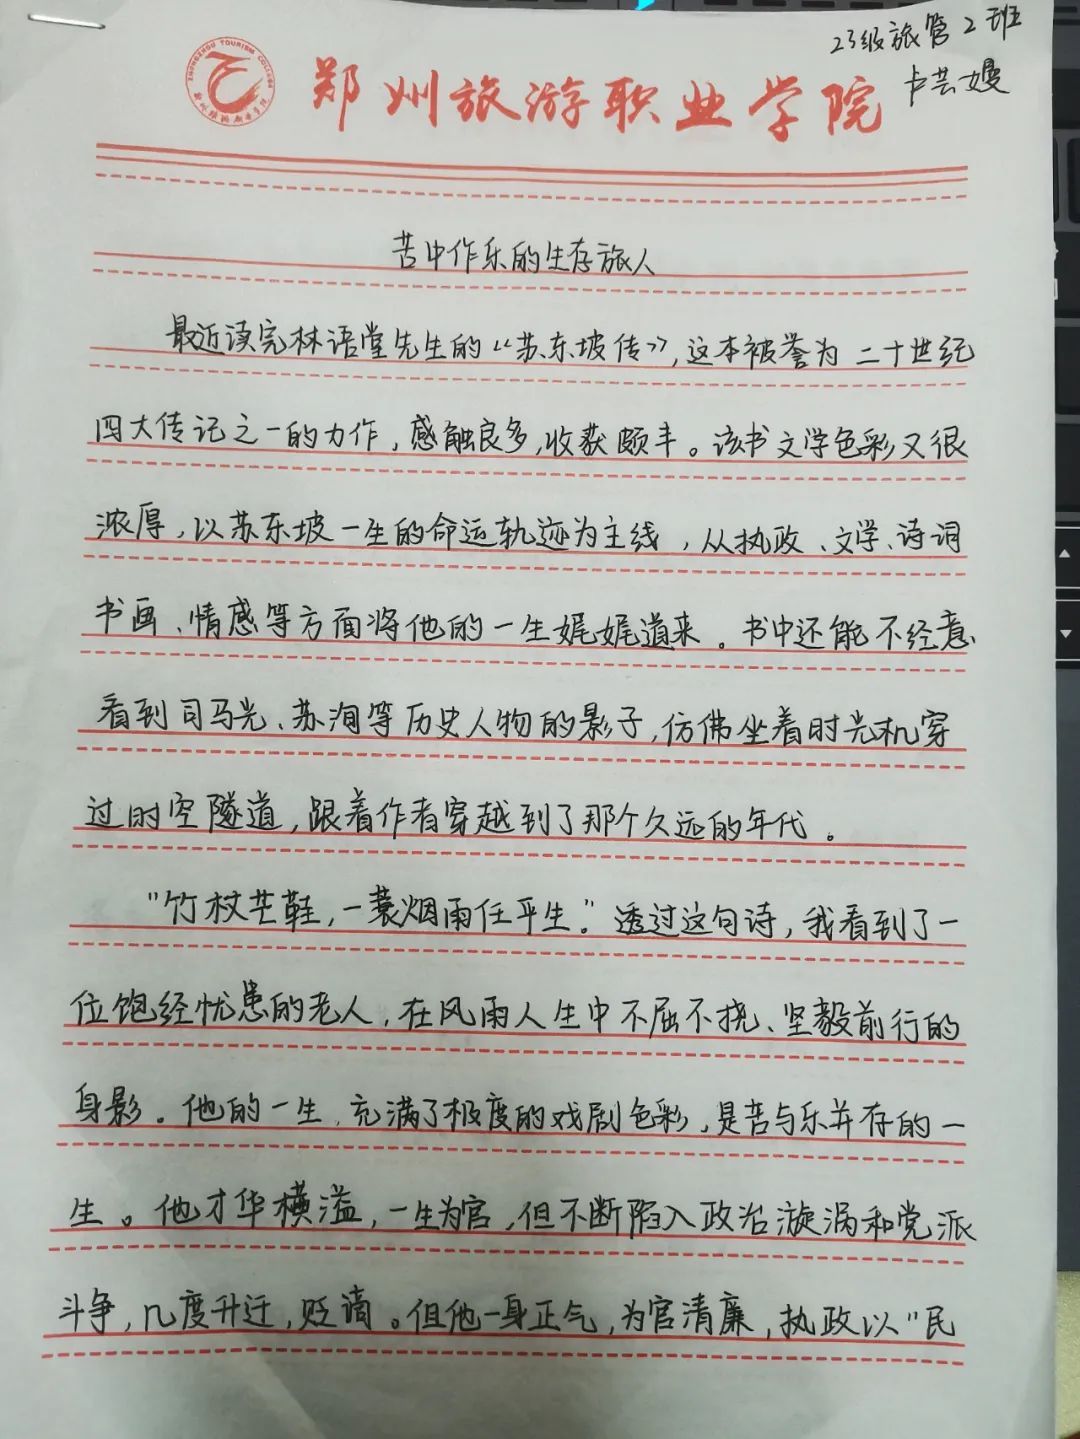 23级旅管2班
卡芸嫚
ZHENGZHOU TOURISM COLLEGE
郑州旅游职业学院
苦中作乐的生存旅人
最近读完林语堂先生的《苏东坡传》,这本被誉为二十世纪
四大传记之一的力作,感触良多,收获颇丰。该书文学色彩又很
浓厚,以苏东坡一生的命运轨迹为主线,从执政、文学、诗词
书画、情感等方面将他的一生娓娓道来。书中还能不经意
看到司马光、苏洵等历史人物的影子,仿佛坐着时光机穿
过时空隧道,跟着作者穿越到了那个久远的年代。
"竹杖芒鞋,一蓑烟雨任平生。"透过这句诗,我看到了一
位饱经忧患的老人,在风雨人生中不屈不挠、坚毅前行的
身影。他的一生,充满了极度的戏剧色彩,是苦与乐并存的一
生。他才华横溢,一生为官,但不断陷入政治漩涡和党派
斗争,几度升迁,贬谪。但他一身正气,为官清廉,执政以"民